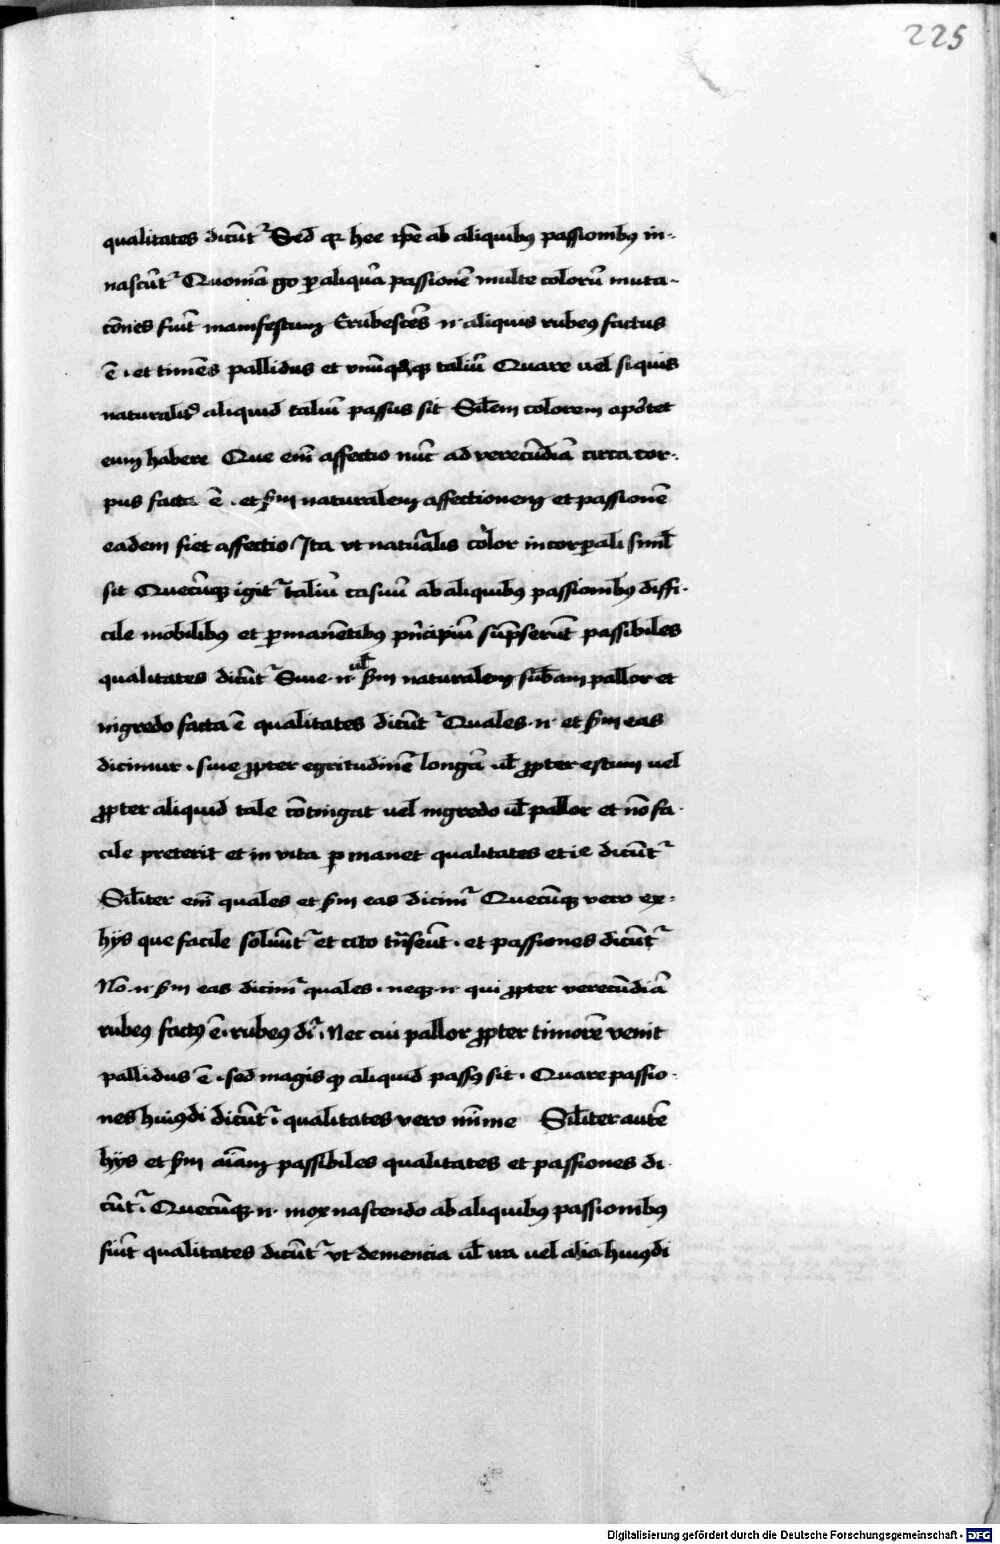 225
qualitates dicūt᷑ Sed qꝛ hee ip̄e ab aliquibꝯ passionibꝯ in-
nascūt᷑ Quoniā gͦ ꝑ aliquā passionē multe colorū muta-
cōnes fiūt manifestum Erubescēs .n. aliquis rubeꝯ factus
ē . et timēs pallidus et vnūqdqꝫ taliū Quare vel siquis
naturaliꝰ aliquid taliū passus sit Silēm colorem oportet
eum habere Que enī affectio nūc ad verecūdiā circa cor-
pus facta ē . et scđm naturalem affectionem et passionē
eadem fiet affectio Ita vt naturalis color in corꝑali simlꝭ
sit Quecūqꝫ igit᷑ taliū casuū ab aliquibꝯ passionibꝯ diffi-
cile mobilibꝯ et ꝑmanētibꝯ pncipiū sūpserūt passibiles
qualitates dicūt᷑ Siue .n. vl̄ scđm naturalem subam pallor et
nigredo facta ē qualitates dicūt᷑ Quales .n. et scđm eas
dicimur . siue ꝓpter egritudinē longā vl̄ ꝓpter estum vel
ꝓpter aliquid tale cōtingat uel nigredo vl̄ pallor et nō fa-
cile preterit et in vita ꝑmanet qualitates et ie dicūt᷑
Siliter enī quales et scđm eas dicim᷑ Quecūqꝫ vero ex
hijs que facile soluūt᷑ et cito trāseūt . et passiones dicūt᷑
Nō .n. scđm eas dicim᷑ quales . neqꝫ .n. qui ꝓpter verecūdiā
rubeꝯ factꝯ ē . rubeꝯ dr̄ . Nec cui pallor ꝓpter timorē venit
pallidus ē . sed magis qꝫ aliquid passꝯ sit . Quare passio-
nes huiꝯdi dicūt᷑ . qualitates vero minime Siliter autē
hijs et scđm aīam passibiles qualitates et passiones di
cūt᷑ . Quecūqꝫ .n. mox nascendo ab aliquibꝯ passionibꝯ
fiūt qualitates dicūt᷑ vt demencia vl̄ ira vel alia huiꝯdi
Digitalisierung gefördert durch die Deutsche Forschungsgemeinschaft - DFG